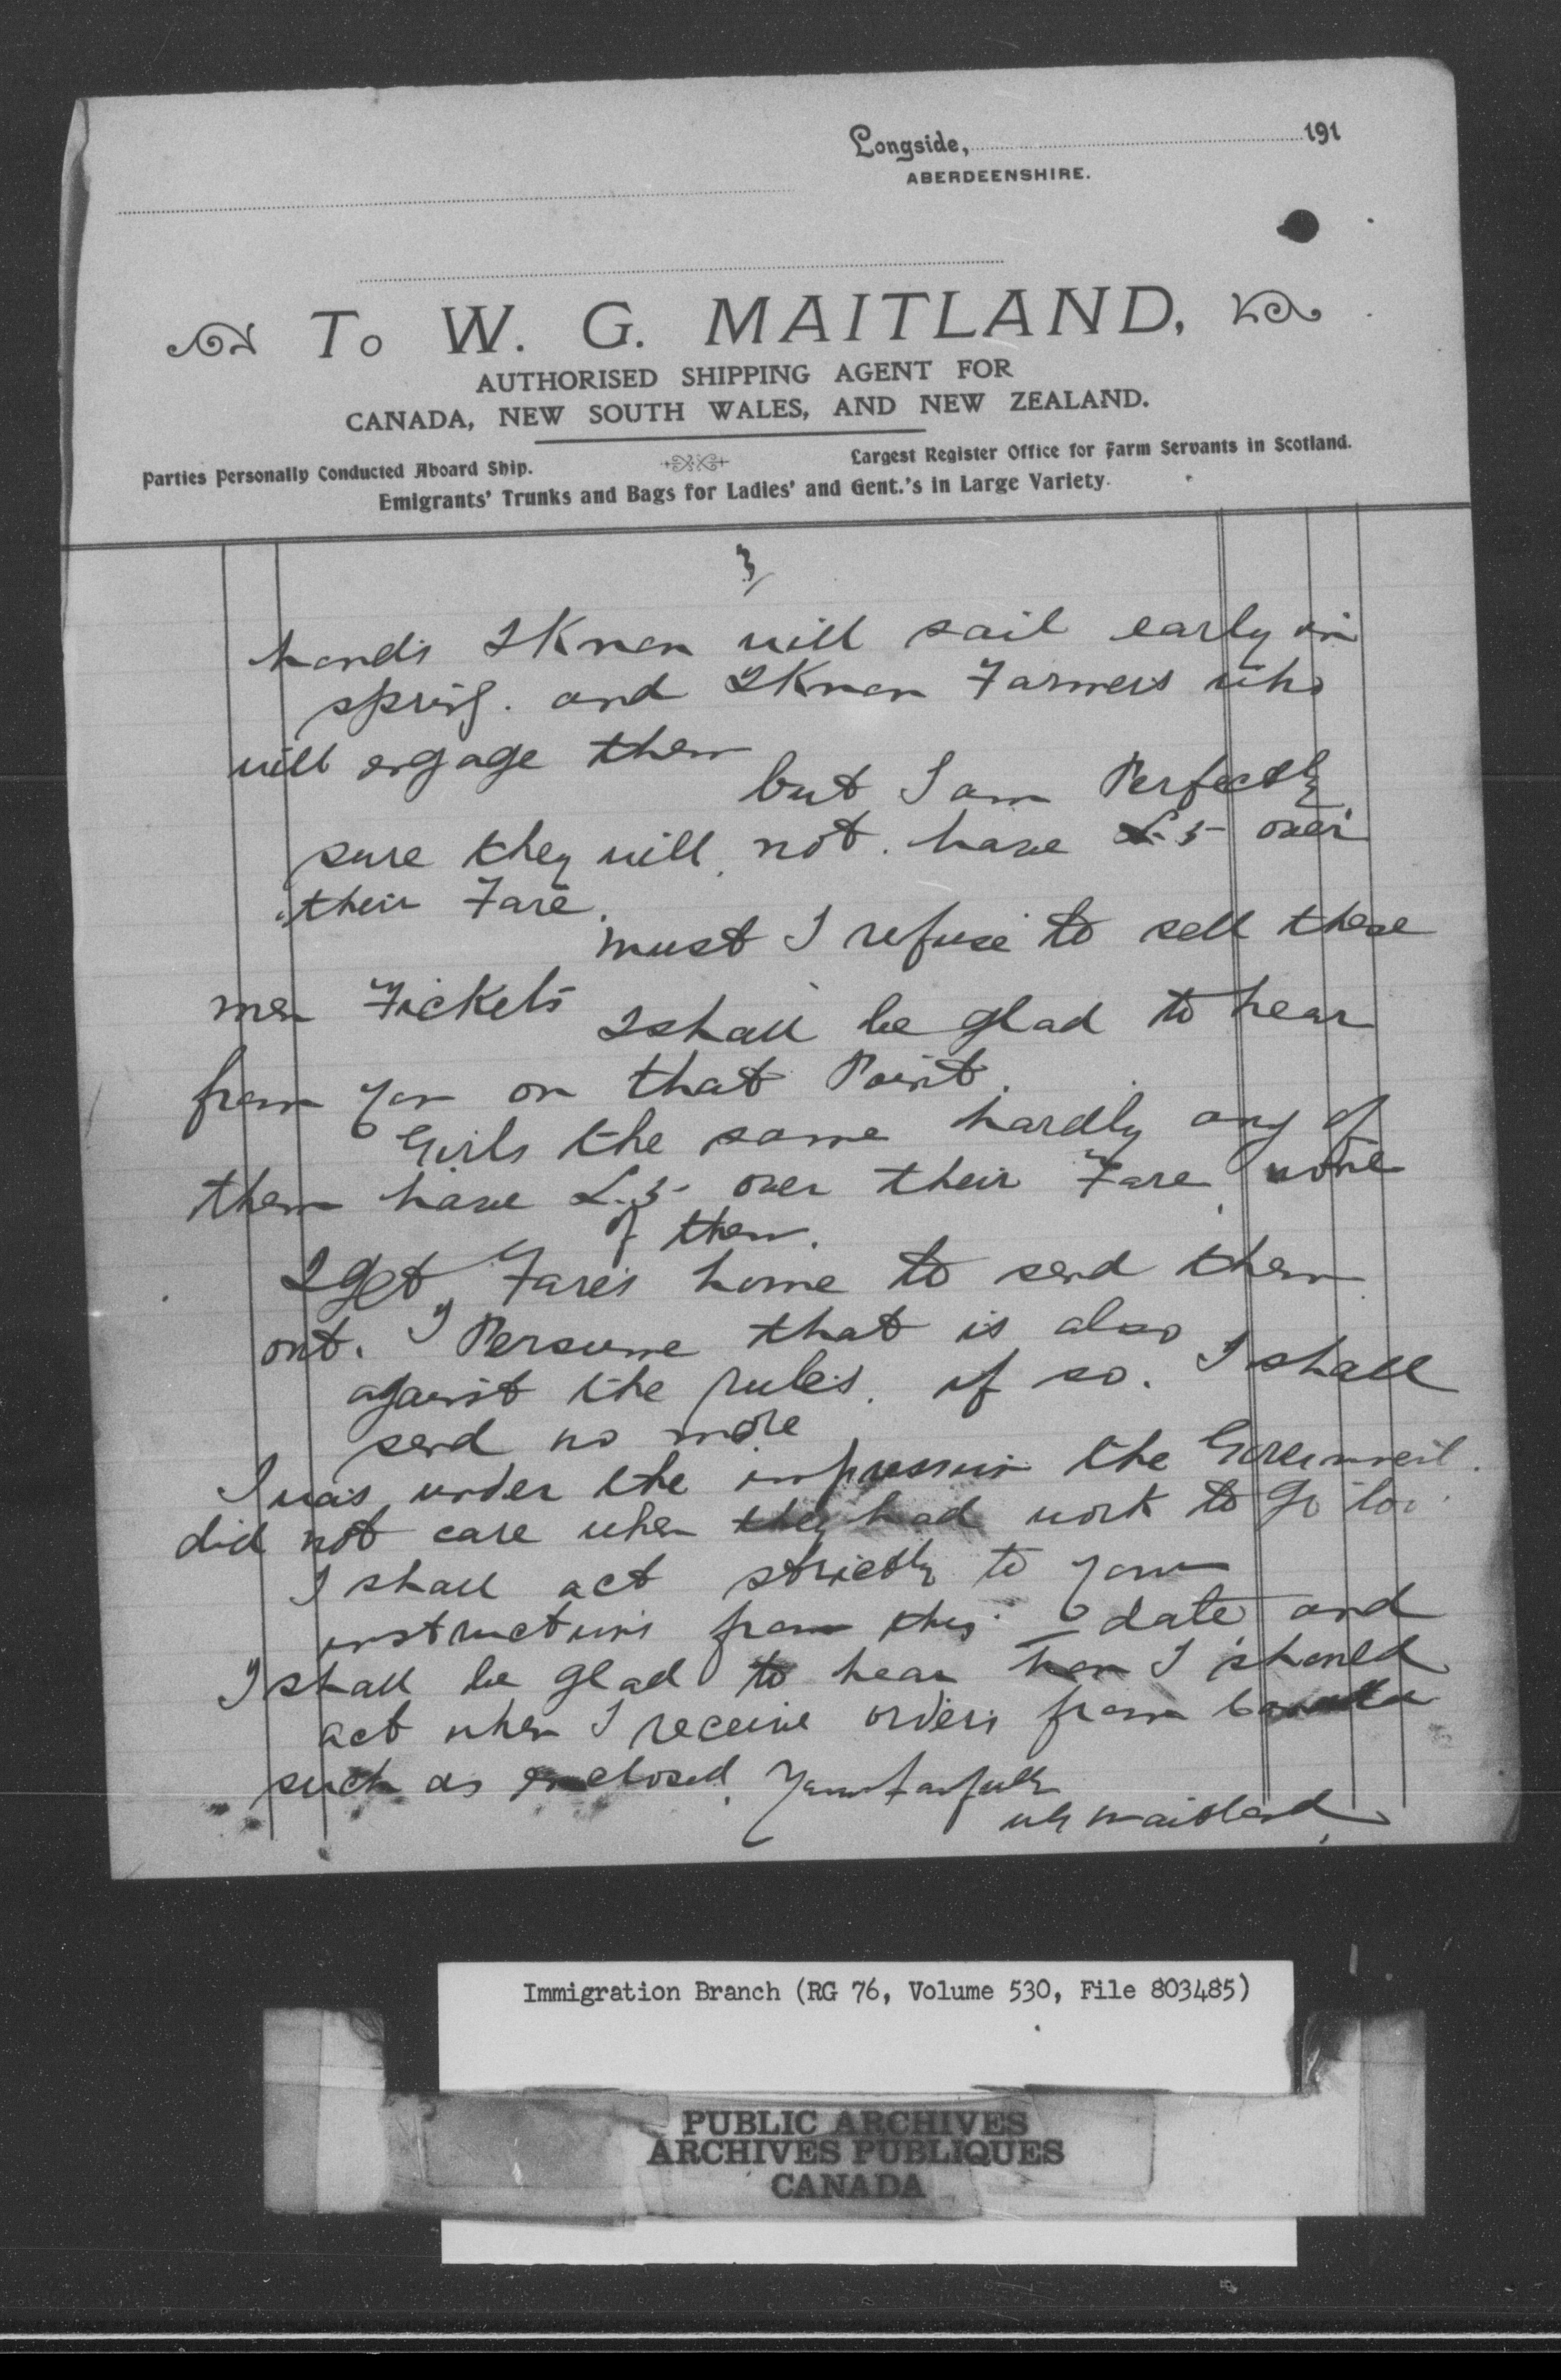 Longside, 191
ABERDEENSHIRE.
To W. G. MAITLAND,
AUTHORISED SHIPPING AGENT FOR
CANADA, NEW SOUTH WALES, AND NEW ZEALAND.
Parties Personally Conducted Aboard Ship. Largest Register Office for Farm Servants in Scotland.
Emigrants' Trunks and Bags for Ladies' and Gent.'s in Large Variety.
3/
hands I Know will sail early in
spring. and I Know Farmers who
will engage them
but I am Perfectly
sure they will not have £5- over
their Fare.
must I refuse to sell these
men Tickets I shall be glad to hear
from you on that Point.
Girls the same hardly any of
them have £.5- over their Fare none
of them.
I get Fares home to send them
out. I Persume that is also
against the rules. if so. I shall
send no more
I was under the impression the Government.
did not care when they had work to go too.
I shall act strictly to your
instructions from this date and
I shall be glad to hear how I should
act when I receive orders from Canada
such as enclosed. Yours faifully
WG Maitland
Immigration Branch (RG 76, Volume 530, File 803485)
PUBLIC ARCHIVES
ARCHIVES PUBLIQUES
CANADA